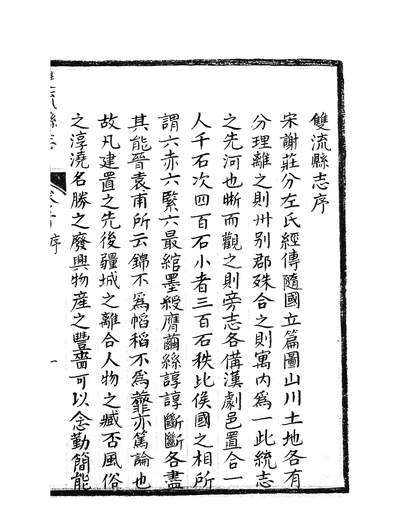 雙流縣志序
宋謝莊分左氏經傳隨國立篇圖山川土地各有
分理離之則州别郡殊合之則寓内為一此統志
之先河也晰而觀之則旁志各備漢劇邑置合一
人千石次四百石小者三百石秩比侯國之相所
謂六赤六緊六最綰墨綬膺繭絲諄諄斷斷各盡
其能晉袁甫所云錦不為幍稻不為虀亦篤論也
故凡建置之先後疆城之離合人物之臧否風俗
之淳澆名勝之廢興物産之豐嗇可以念勤簡能
流縣志
序
一